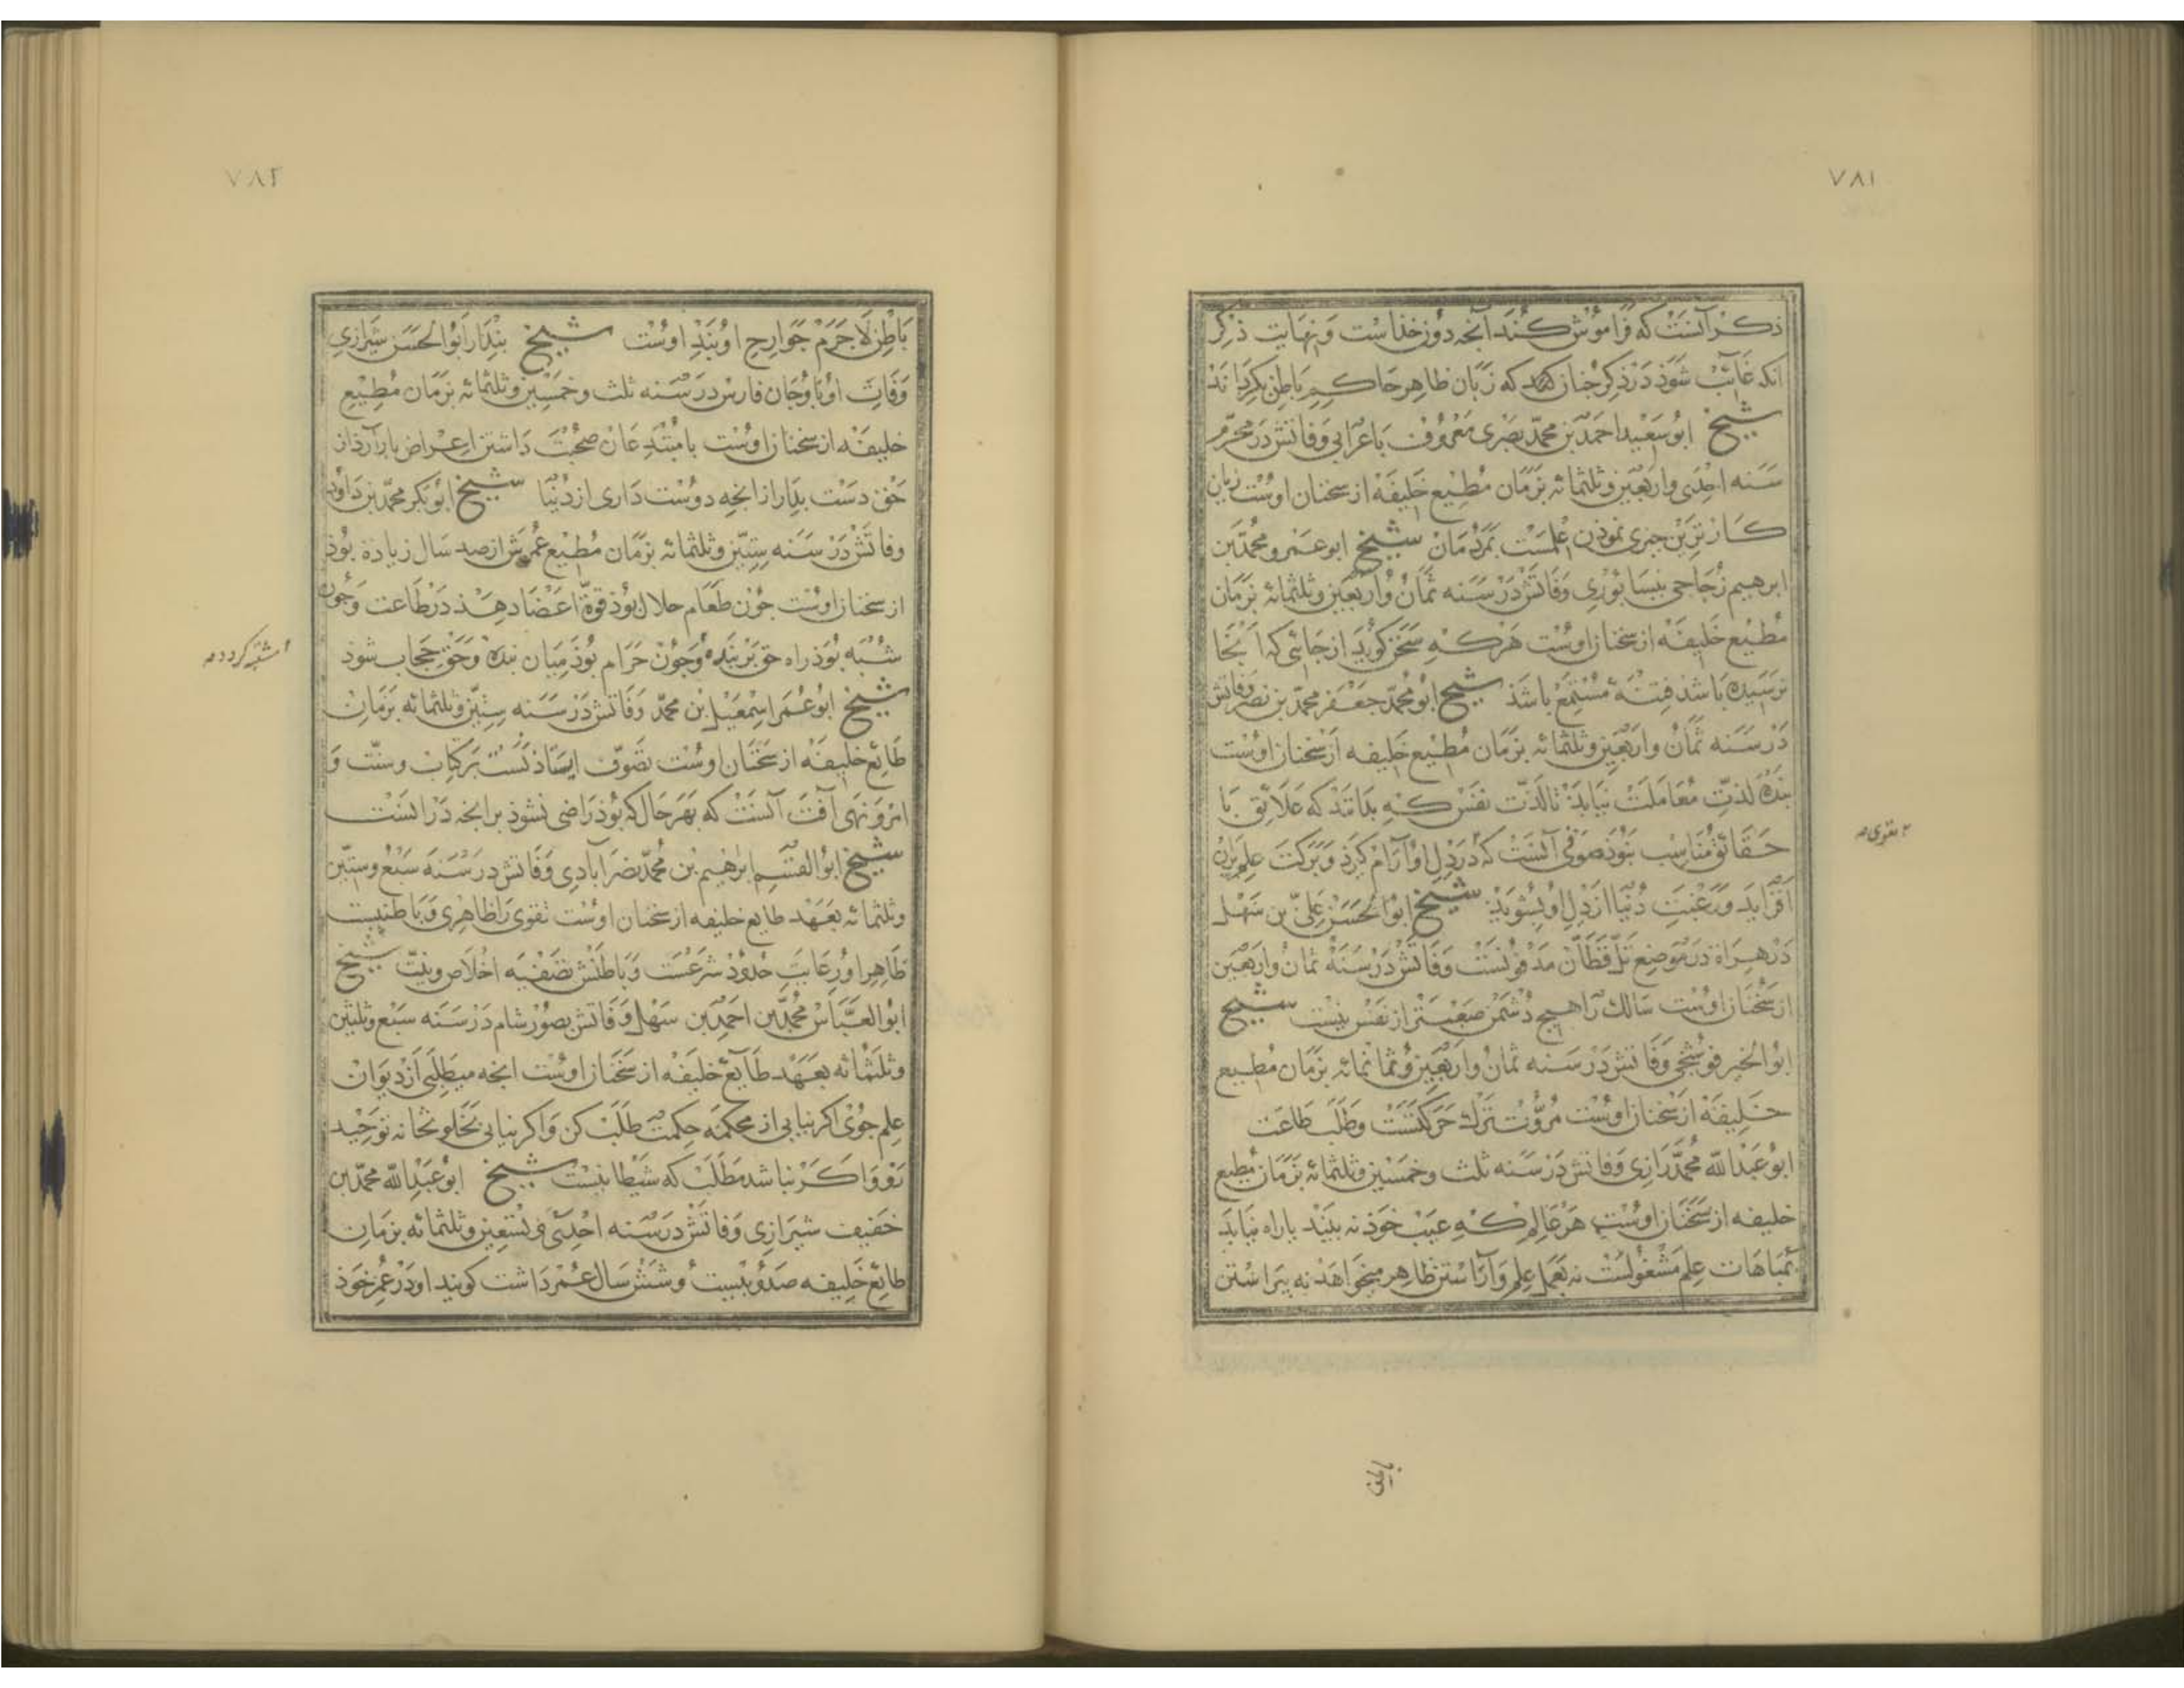 ۷۸۱
ذکر آنست که فراموش کند آنچه دون خذاست و نهایت ذکر
انکه غائب شوذ در ذکر جنان کند که زبان ظاهر حاکم باطن کرداند
شیخ ابوسعید احمد بن محمد بصری معروف باعرابی وفاتش در محرم
سنه احدی واربعین وثلثمائه بزمان مطیع خلیفه از سخنان اوست زیان
کارترین جیزی نموذن علمست بمردمان شیخ ابوعمرو محمد بن
ابرهیم زجاجی نیسابوری وفاتش در سنه ثمان واربعین وثلثمائه بزمان
مطیع خلیفه از سخنان اوست هرکه سخن کوید از جائی که آنجا
نرسیده باشد فتنه مستمع باشد شیخ ابومحمد جعفر محمد بن نصر وفاتش
در سنه ثمان واربعین وثلثمائه بزمان مطیع خلیفه از سخنان اوست
بنده لذت معاملت نیابد تا لذت نفس کم بداند که علائق با
حقائق مناسب نبوذ صوفی آنست که در دل او آرام کیرذ وبرکت علم بران
افزاید ورغبت دنیا از دل او بشوید شیخ ابوالحسن علی بن سهل
در هراة در موضع تل قطان مدفونست وفاتش در سنه ثمان واربعین
از سخنان اوست سالک را هیج دشمن صعبتر از نفس نیست شیخ
ابوالخیر فوشنجی وفاتش در سنه ثمان واربعین وثمانمائه بزمان مطیع
خلیفه از سخنان اوست مروت ترک حرکتست وطلب طاعت
ابوعبدالله محمد رازی وفاتش در سنه ثلث وخمسین وثلثمائه بزمان مطیع
خلیفه از سخنان اوست هر عالم که عیب خوذ نه بیند باراه نیاید
بمباهات علم مشغولست نه بعمل علم وآراستن ظاهر میخواهد نه پیراستن
۲ تقوی
باطن
۷۸۲
باطن لا جرم جوارح او بند اوست شیخ بندار ابوالحسن شیرازی
وفات او باوجان فارس در سنه ثلث وخمسین وثلثمائه بزمان مطیع
خلیفه از سخنان اوست با مبتدعان صحبت داشتن اعراض بار آرد از
حق دست بدار از انچه دوست داری از دنیا شیخ ابوبکر محمد بن داود
وفاتش در سنه ستین وثلثمائه بزمان مطیع عمرش از صد سال زیادة بوذ
از سخنان اوست جون طعام حلال بوذ قوة اعضا دهد در طاعت وجون
شبه بوذ راه حق بر بنده وجون حرام بوذ میان بنده وحق حجاب شوذ
شیخ ابوعمر اسمعیل بن محمد وفاتش در سنه ستین وثلثمائه بزمان
طائع خلیفه از سخنان اوست تصوف ایستاذنست بر کتاب وسنت و
امر ونهی آفت آنست که بهر حال که بوذ راضی نشوذ بر انچه در انست
شیخ ابوالقسم ابرهیم بن محمد نصرآبادی وفاتش در سنه سبع وستین
وثلثمائه بعهد طایع خلیفه از سخنان اوست تقوی را ظاهری وباطنیست
ظاهر او رعایت حدود شرعست وباطنش تصفیه اخلاص ونیت شیخ
ابوالعباس محمد بن احمد بن سهل وفاتش بصور شام در سنه سبع وثلثین
وثلثمائه بعهد طایع خلیفه از سخنان اوست انچه میطلبی از دیوان
علم جوی اکر نیابی از محکمه حکمت طلب کن واکر نیابی بخلوتخانه توحید
رو واکر نباشد مطلب که شیطانیست شیخ ابوعبدالله محمد بن
خفیف شیرازی وفاتش در سنه احدی وتسعین وثلثمائه بزمان
طایع خلیفه صدوبیست وشش سال عمر داشت کویند او در عمر خوذ
۲ مشتبه کردد